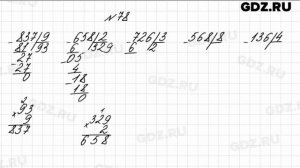 GDZ.RU
№ 78
-837|9 -658|2 -726|3 -568|8 -136|4
81|93 6|329 6|2
-27 -05 12
27 4
0 -18
18
0
2 1
×93 ×329
9 2
837 658